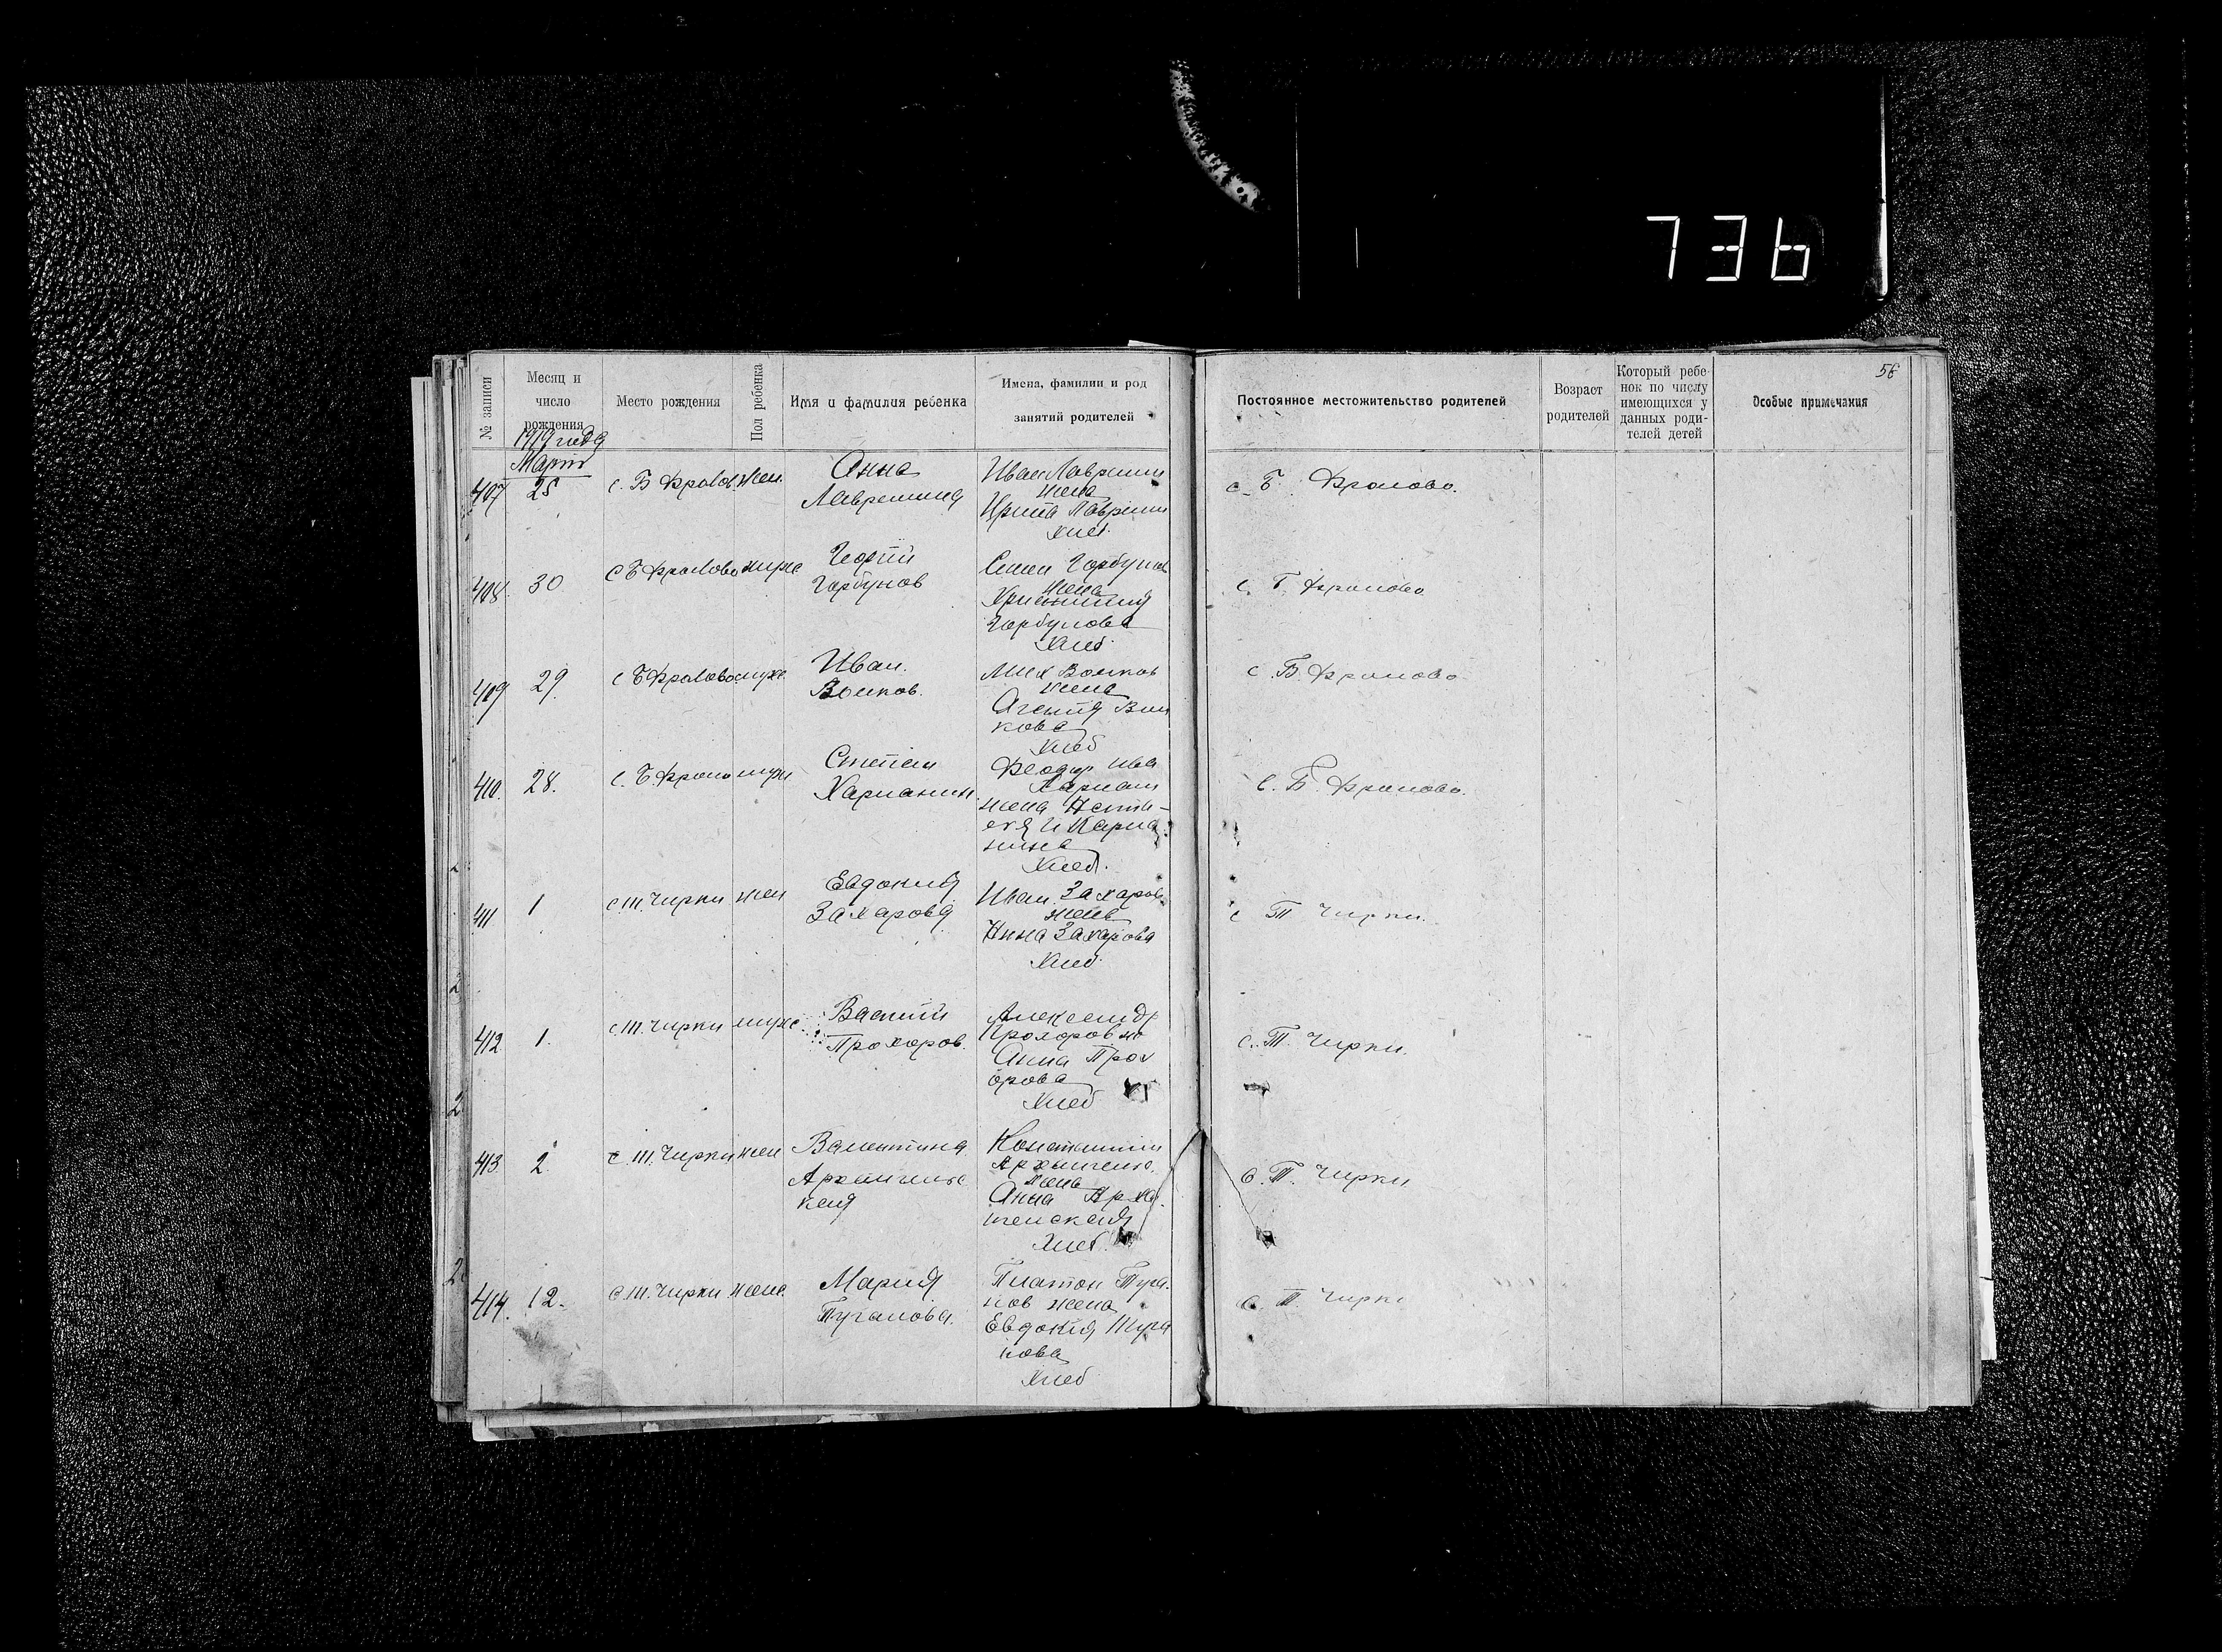 736
56
№ записи
Месяц и
число
рождения
Место рождения
Пол ребенка
Имя и фамилия ребенка
Имена, фамилии и род
занятий родителей
Постоянное местожительство родителей
Возраст
родителей
Который ребе-
нок по числу
имеющихся у
данных роди-
телей детей
Особые примечания
1919 года
Март
407 25 с. Б Фролов. жен.
Анна
Лаврешина
Иван
жена
Хлеб.
с. Б. Фролово.
408 30 с Б Фролово муже
Георгий
Горбунов
Горбунов
жена
Горбунова
Хлеб.
с. Б. Фролово
409 29. с Б Фролово муже
Иван.
Волков.
Мих Волков
жена
Вол
кова
Хлеб
с. Б. Фролово
410. 28. с. Б. Фроло муж
Степан
Харланин.
Феодор Ива
жена
нина
Хлеб.
с. Б. Фролово.
411 1 с Т. Чирки жен
Евдокия
Захарова
Иван Захаров
жена
Анна Захарова
Хлеб.
с Т Чирки.
412 1. с Т. Чирки муже.
Василий
Прохоров.
Александр
Прохоров
Анна Прох
орова
Хлеб
с. Т. Чирки.
413 2. с. Т. Чирки жен
Валентина
кая
Константин
жена
Анна Арха
Хлеб.
с. Т. Чирки
414. 12. с. Т. Чирки жене
Мария
Туганова.
Платон Туга
нов жена
Евдокия Туга
нова
Хлеб
с. Т. Чирки